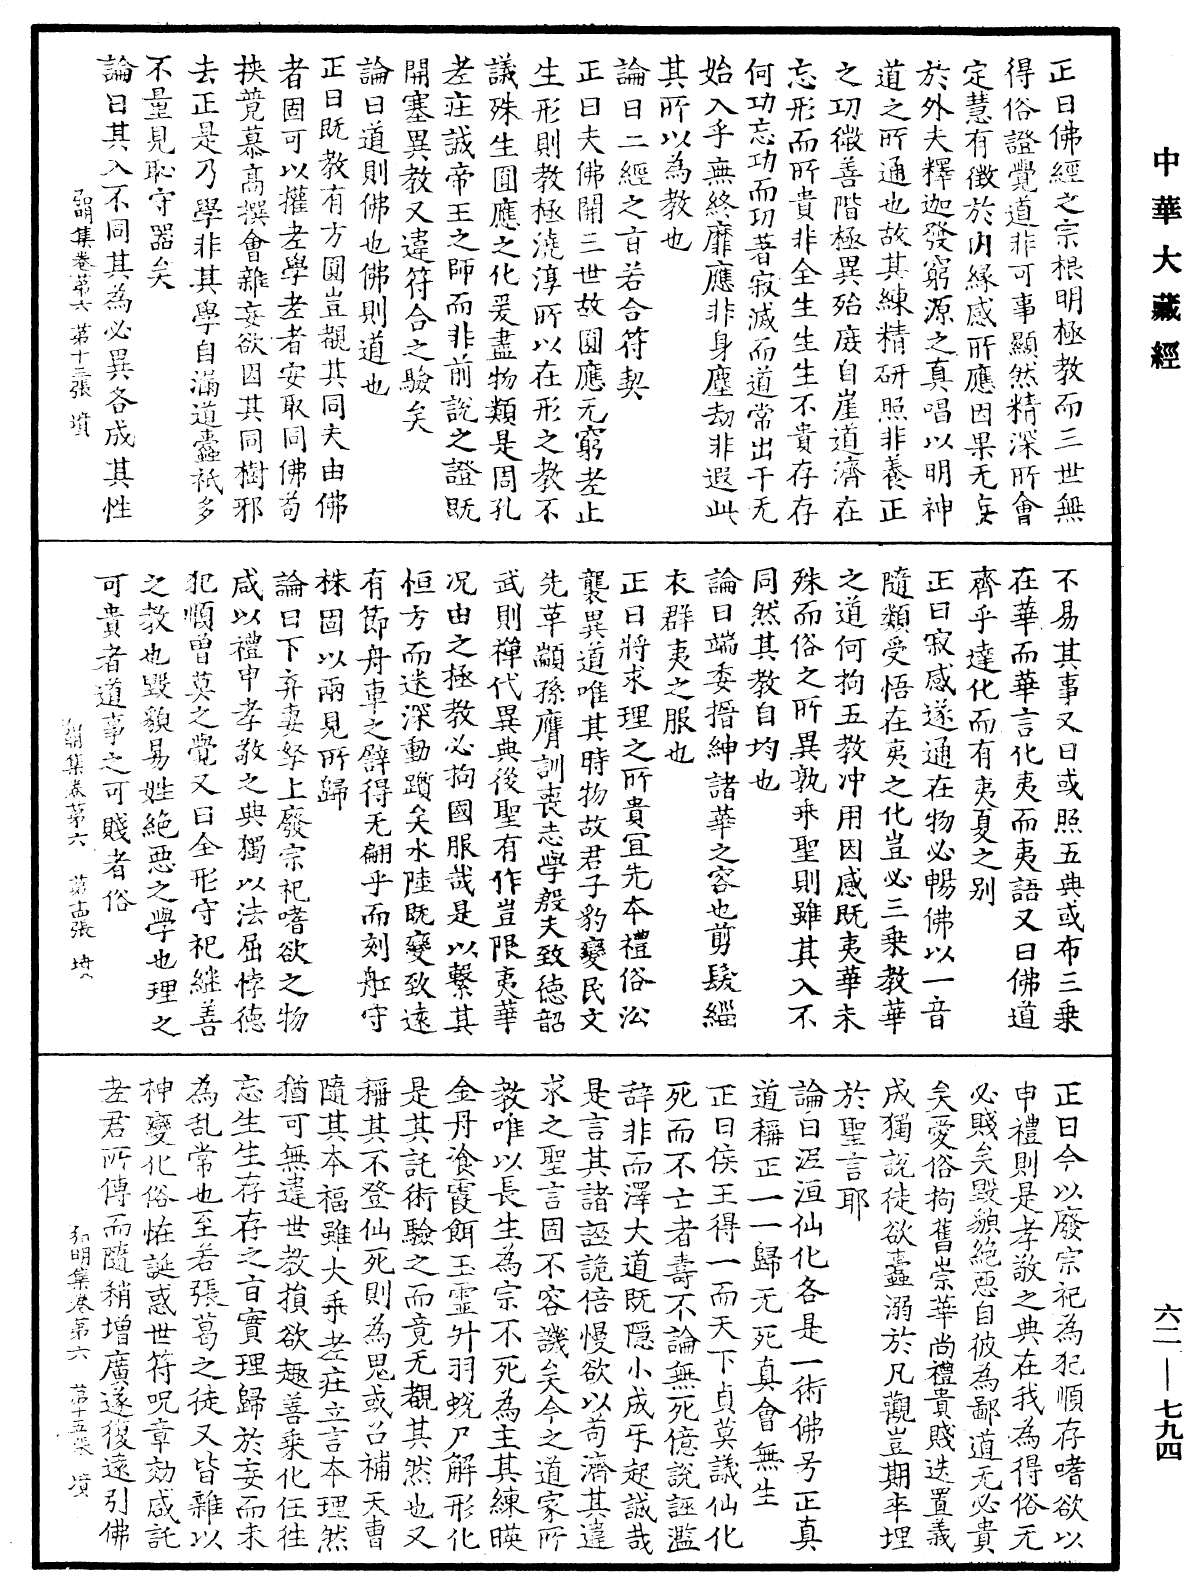 中華大藏經
正曰佛經之宗根明極教而三世無
得俗證覺道非可事顯然精深所會
定慧有徵於內緣感所應因果无㚖
於外夫釋迦發窮源之真唱以明神
道之所通也故其練精研照非養正
之功微善階極異殆庶自崖道濟在
忘形而所貴非全生生生不貴存存
何功忘功而功著寂滅而道常出乎无
始入乎無終靡應非身塵劫非遐此
其所以為教也
論曰二經之旨若合符契
正曰夫佛開三世故圓應无窮老止
生形則教極澆淳所以在形之教不
議殊生圓應之化爰盡物類是周孔
老莊誠帝王之師而非前說之證既
開塞異教又違符合之驗矣
論曰道則佛也佛則道也
正曰既教有方圓豈觀其同夫由佛
者固可以權老學老者安取同佛苟
挾競慕高撰會雜妄欲因其同樹邪
去正是乃學非其學自滿道蠹祇多
不量見恥守器矣
弘明集卷第六 第十三張 墳
論曰其入不同其為必異各成其性
不易其事又曰或照五典或布三乗
在華而華言化夷而夷語又曰佛道
齊乎達化而有夷夏之別
正曰寂感遂通在物必暢佛以一音
隨類受悟在夷之化豈必三乗教華
之道何拘五教冲用因感既夷華未
殊而俗之所異孰乖聖則雖其入不
同然其教自均也
論曰端委搢紳諸華之容也剪髮緇
衣群夷之服也
正曰將求理之所貴宜先本禮俗沿
襲異道唯其時物故君子豹變民文
先革顓孫膺訓喪志學殷夫致德韶
武則禪代異典後聖有作豈限夷華
况由之極教必拘國服哉是以繫其
恒方而迷深動躓矣水陸既變致遠
有節舟車之譬得无翩乎而刻舡守
株固以兩見所歸
論曰下弃妻孥上廢宗祀嗜欲之物
咸以禮申孝敬之典獨以法屈悖德
犯順曽莫之覺又曰全形守祀継善
之教也毀貌易姓絶惡之學也理之
可貴者道事之可賤者俗
弘明集卷第六 第十四張 墳
正曰今以廢宗祀為犯順存嗜欲以
申禮則是孝敬之典在我為得俗无
必賤矣毀貌絶惡自彼為鄙道无必貴
矣愛俗拘舊崇華尚禮貴賤迭置義
成獨說徒欲蠹溺於凡觀豈期率埋
於聖言耶
論曰泥洹仙化各是一術佛号正真
道稱正一一歸无死真會無生
正曰侯王得一而天下貞莫議仙化
死而不亡者壽不論無死億說誣濫
辭非而澤大道既隱小成牙起誠哉
是言其諸誣詭倍慢欲以苟濟其違
求之聖言固不容譏矣今之道家所
教唯以長生為宗不死為主其練暎
金丹飡霞餌玉靈升羽蛻尸解形化
是其託術驗之而竟无覩其然也又
稱其不登仙死則為鬼或召補天曹
隨其本福雖大乖老莊立言本理然
猶可無違世教損欲趣善乗化任往
忘生生存存之旨實理歸於妄而未
為乱常也至若張葛之徒又皆雜以
神變化俗恠誕惑世符呪章効咸託
老君所傳而隨稍增廣遂復遠引佛
弘明集卷第六 第十五張 墳
六二—七九四